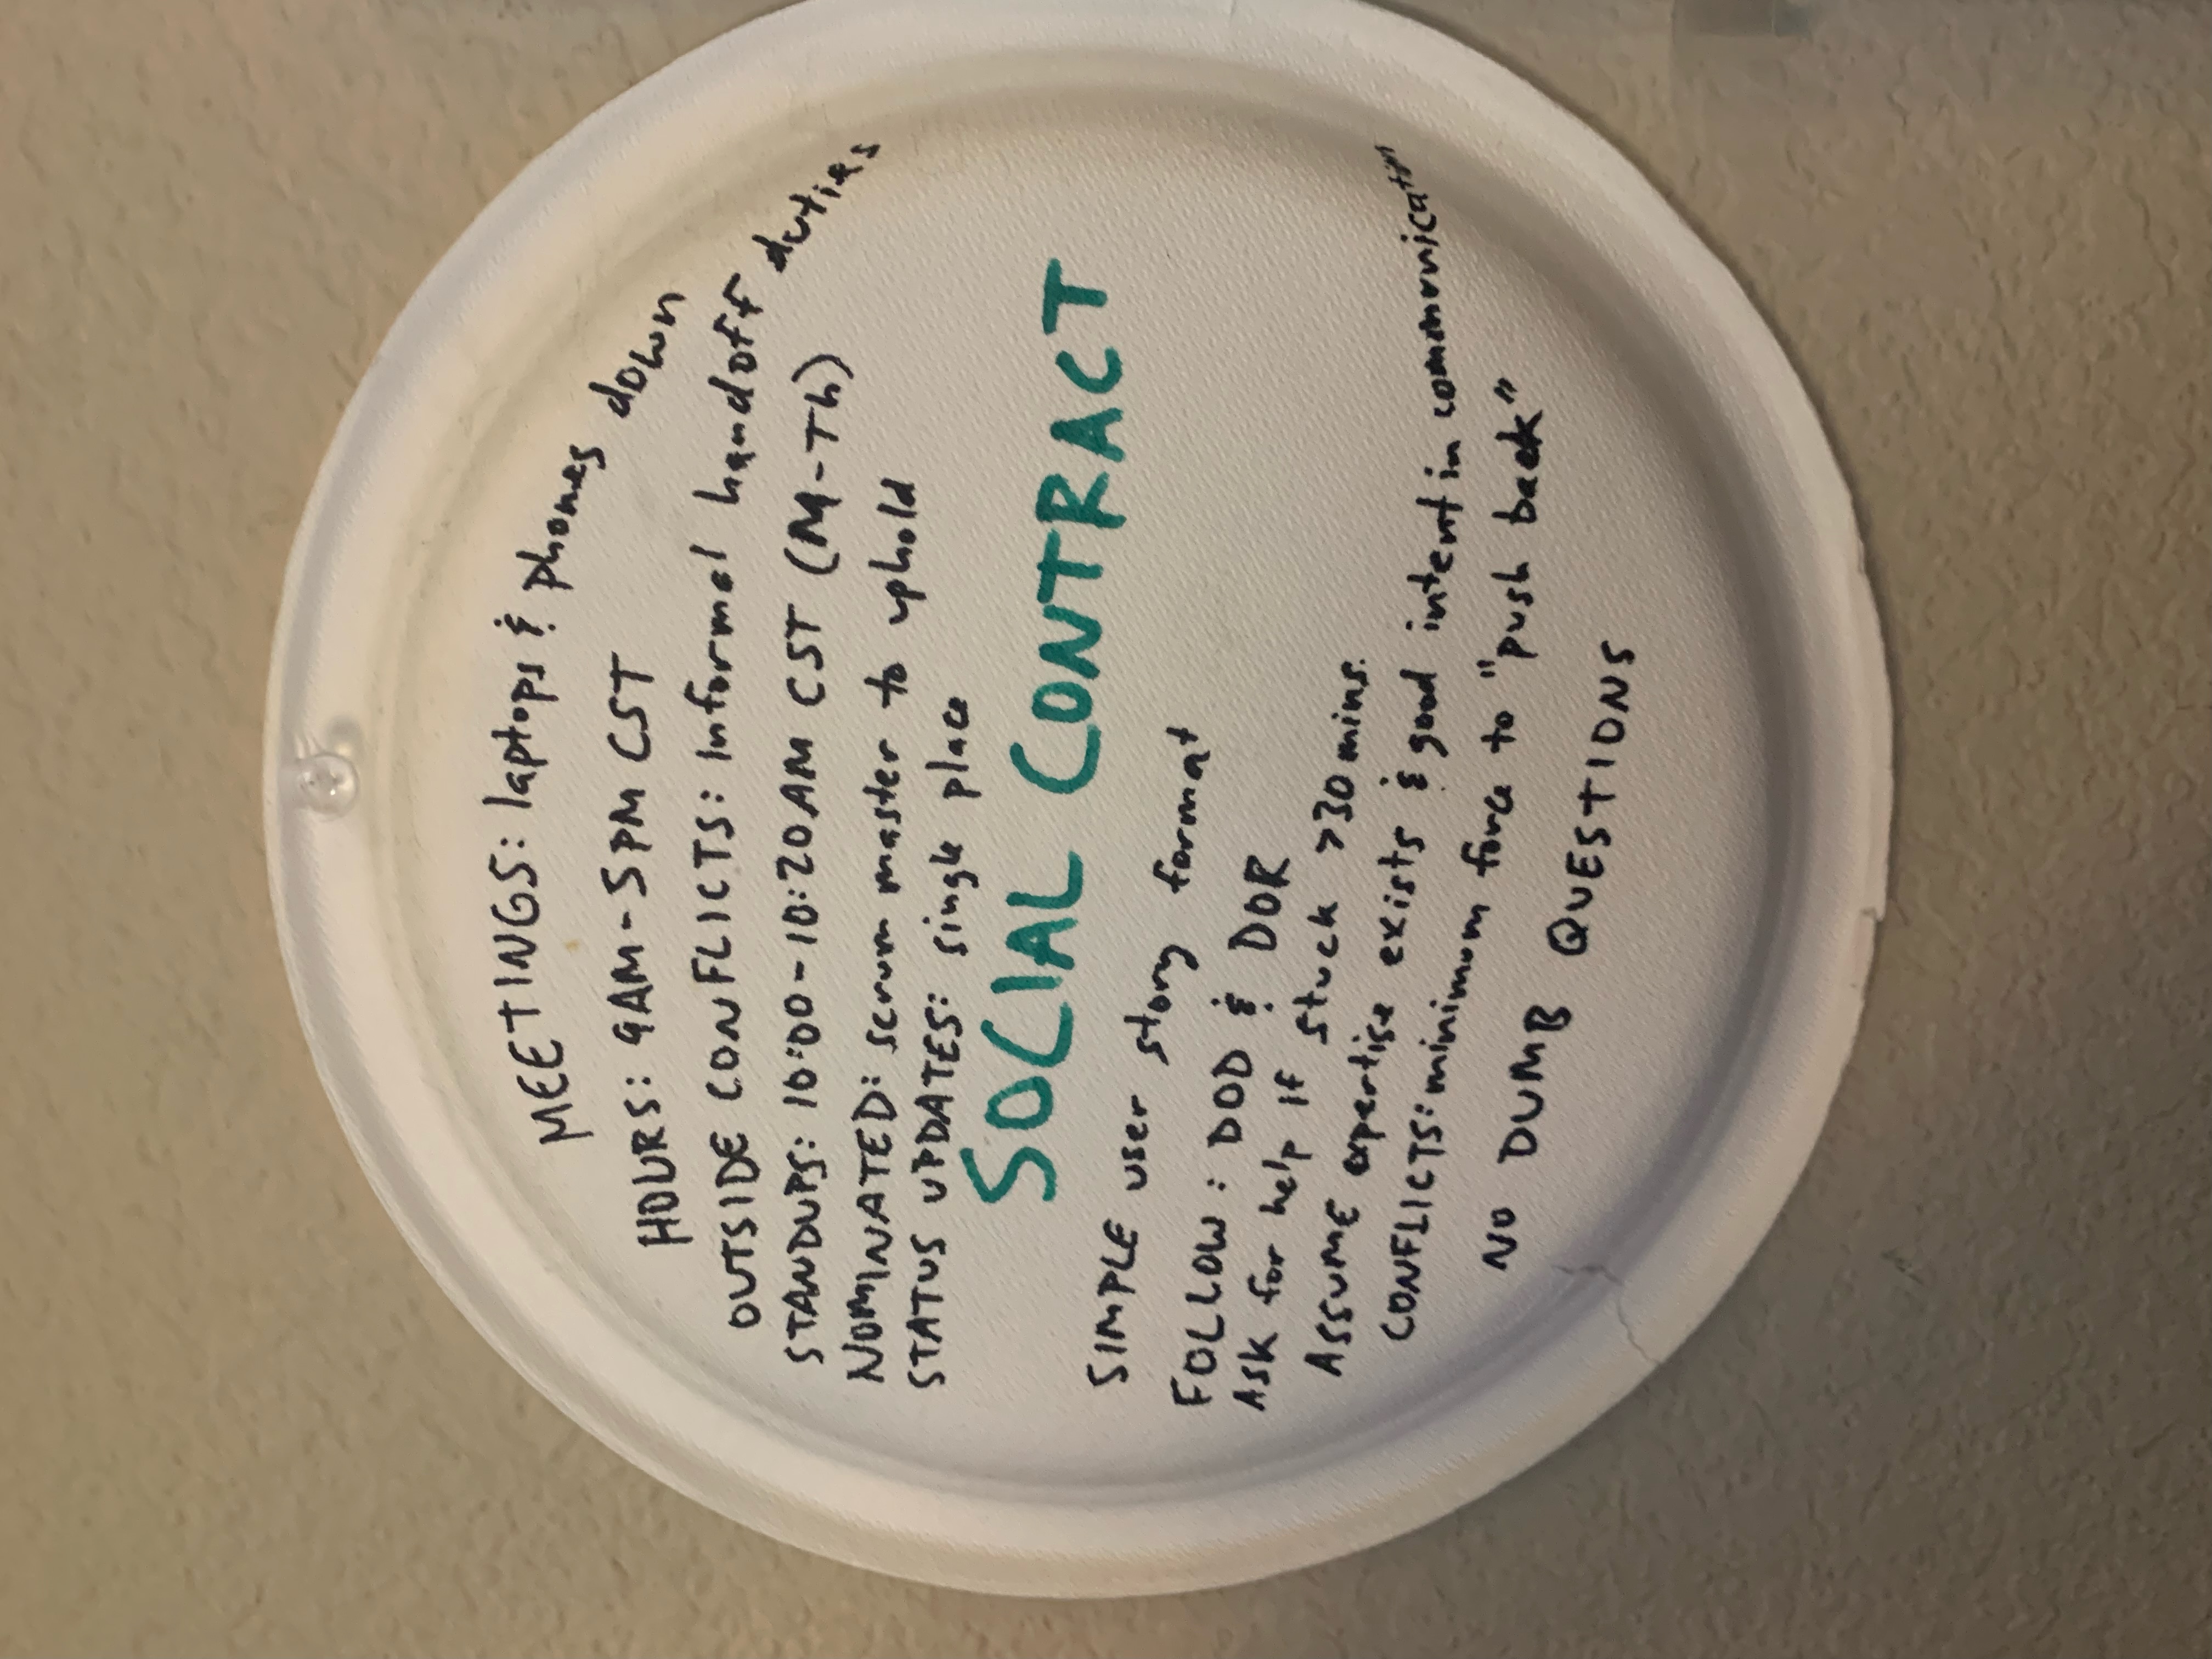 MEETINGS: laptops & phones down
HOURS: 9AM-5PM CST
OUTSIDE CONFLICTS: Informal handoff duties
STANDUPS: 10:00-10:20AM CST (M-Th)
NOMINATED: scrum master to uphold
STATUS UPDATES: single place
SOCIAL CONTRACT
SIMPLE user story format
FOLLOW: DOD & DOR
ASK for help if stuck >30 mins.
ASSUME expertise exists & good intent in communication
CONFLICTS: minimum force to "push back"
NO DUMB QUESTIONS